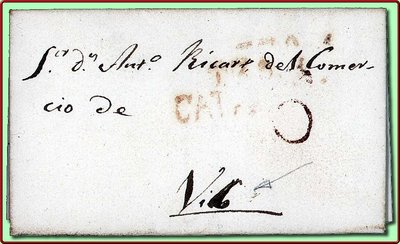 S.or d.n Ant.o Ricart del Comer-
cio de
CAT
Vich